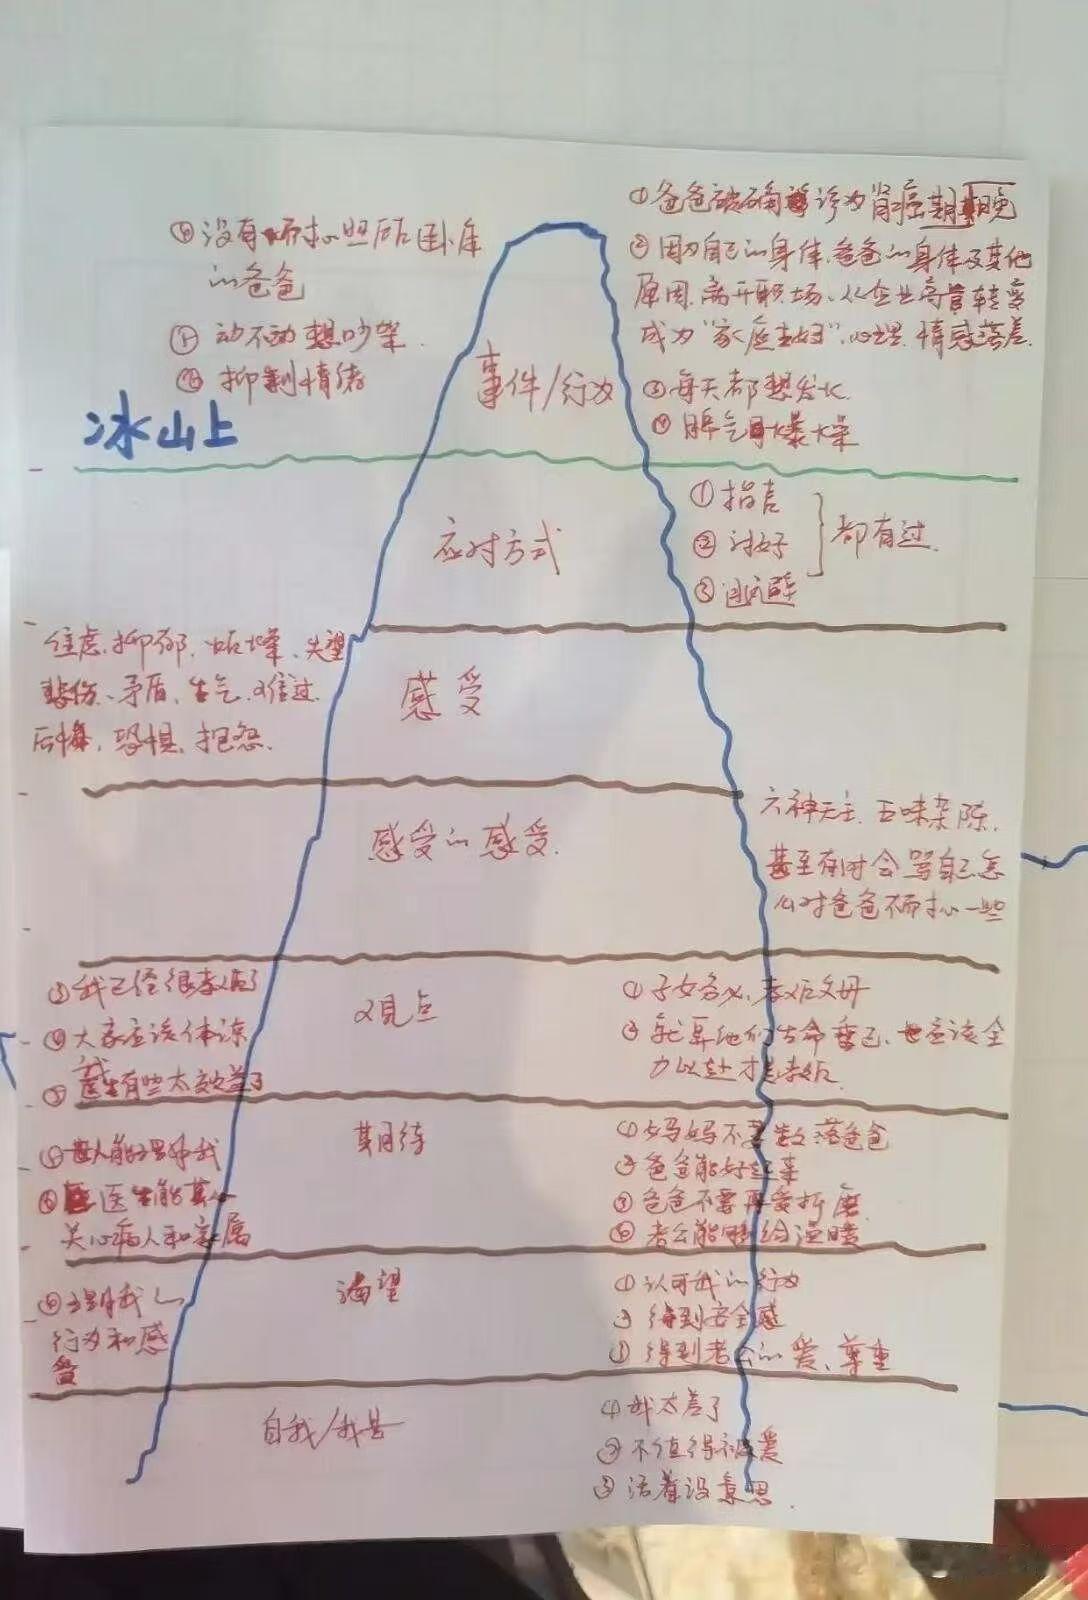 ①爸爸被确诊为肾癌晚期
②因为自己的身体、爸爸的身体及其他
原因,离开职场、从企业高管转变
成为"家庭主妇",心理、情感落差.
③每天都想发火
④脾气暴燥
⑤没有耐心照顾卧床
的爸爸
动不动想吵架.
抑制情绪
冰山上
事件/行为
应对方式
①指责
②讨好
③逃避
都有过.
焦虑、抑郁、烦燥、失望
悲伤、矛盾、生气、难过、
后悔、恐惧、抱怨.
感受
感受的感受.
六神无主、五味杂陈、
甚至有时会骂自己怎
么对爸爸不耐心一些
观点
①子女务必孝顺父母
②就算他们生命垂危,也应该全
力以赴才是孝顺.
③我已经很孝顺了
④大家应该体谅
我
⑤医生有些太效益了
期待
①妈妈不要数落爸爸
②爸爸能好起来
③爸爸不要再受折磨
⑥老公能给温暖
人能理解我
医生能真心
关心病人和家属
渴望
①认可我的行为
②得到安全感
③得到老公的爱、尊重
④理解我的
行为和感
受
自我/我是
①我太差了
②不值得被爱
③活着没意思.